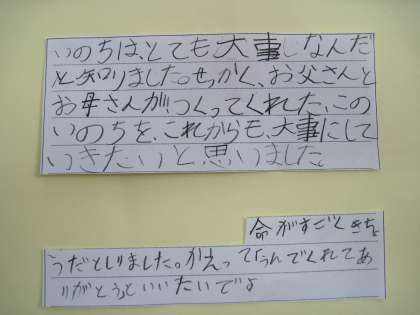 いのちは、とても大事なんだ
と知りました。せっかく、お父さんと
お母さんが、つくってくれた、この
いのちを、これからも、大事にして
いきたいと思いました。
命がすごくきちょ
うだとしりました。かえってうんでくれてあ
りがとうっといいたいでよ